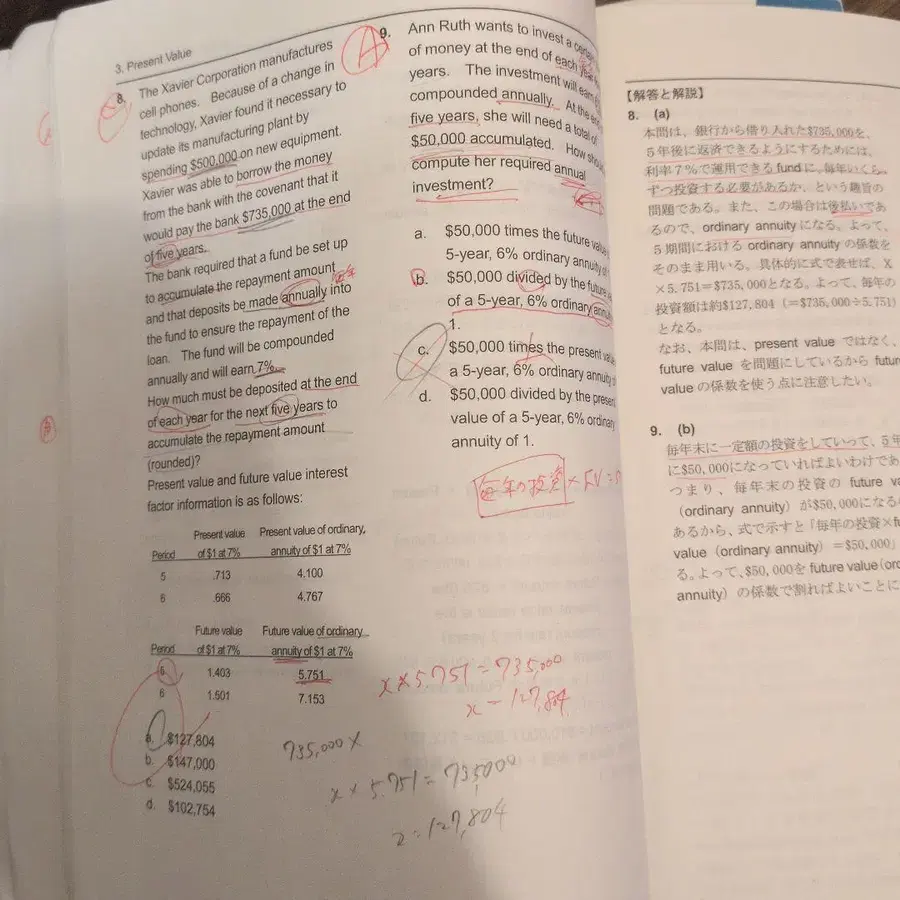 3. Present Value
8. The Xavier Corporation manufactures
cell phones. Because of a change in
technology, Xavier found it necessary to
update its manufacturing plant by
spending $500,000 on new equipment.
Xavier was able to borrow the money
from the bank with the covenant that it
would pay the bank $735,000 at the end
of five years.
The bank required that a fund be set up
to accumulate the repayment amount
毎年
and that deposits be made annually into
the fund to ensure the repayment of the
loan. The fund will be compounded
annually and will earn 7%.
How much must be deposited at the end
of each year for the next five years to
accumulate the repayment amount
(rounded)?
Present value and future value interest
factor information is as follows:
Present value Present value of ordinary,
Period of $1 at 7% annuity of $1 at 7%
5 .713 4.100
6 .666 4.767
Future value Future value of ordinary
Period of $1 at 7% annuity of $1 at 7%
5 1.403 5.751
6 1.501 7.153
a. $127,804
b. $147,000
c. $524,055
d. $102,754
735,000 X
x × 5.751 = 735,000
x = 127,804
x × 5.751 = 735,000
x = 127,804
A
9. Ann Ruth wants to invest a
of money at the end of each
years. The investment will earn
compounded annually. At the
five years, she will need a total of
$50,000 accumulated. How
compute her required annual
investment?
a. $50,000 times the future
5-year, 6% ordinary annuity
b. $50,000 divided by the future
of a 5-year, 6% ordinary
1.
c. $50,000 times the present
a 5-year, 6% ordinary annuity
d. $50,000 divided by the present
value of a 5-year, 6% ordinary
annuity of 1.
毎年の投資 × FV =
【解答と解説】
8. (a)
本問は、銀行から借り入れた$735,000を、
5年後に返済できるようにするためには、
利率7%で運用できる fund に、毎年いくら
ずつ投資する必要があるか、という趣旨の
問題である。また、この場合は後払いであ
るので、ordinary annuity になる。よって、
5期間における ordinary annuity の係数を
そのまま用いる。具体的に式で表せば、X
×5.751=$735,000となる。よって、毎年の
投資額は約$127,804 (=$735,000÷5.751)
となる。
なお、本問は、present value ではなく、
future value を問題にしているから
value の係数を使う点に注意したい。
9. (b)
毎年末に一定額の投資をしていって、5年
に$50,000になっていればよいわけであ
つまり、毎年末の投資の future
(ordinary annuity) が$50,000になる
あるから、式で示すと「毎年の投資×
value (ordinary annuity) =$50,000」
る。よって、$50,000を future value
annuity) の係数で割ればよいことに